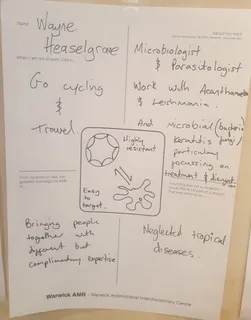 Name:
Wayne
Heaselgrave
Go cycling
&
Travel
Microbiologist
& Parasitologist
Work with Acanthamoeba
& Leishmania.
And microbial (bacteria
keratitis fungi)
particularly
focussing on
treatment &
Highly
resistant
Easy
to
target.
Bringing people
together with
different but
complimentary expertise
Neglected tropical
diseases.
Warwick AMR - Warwick Antimicrobial Interdisciplinary Centre